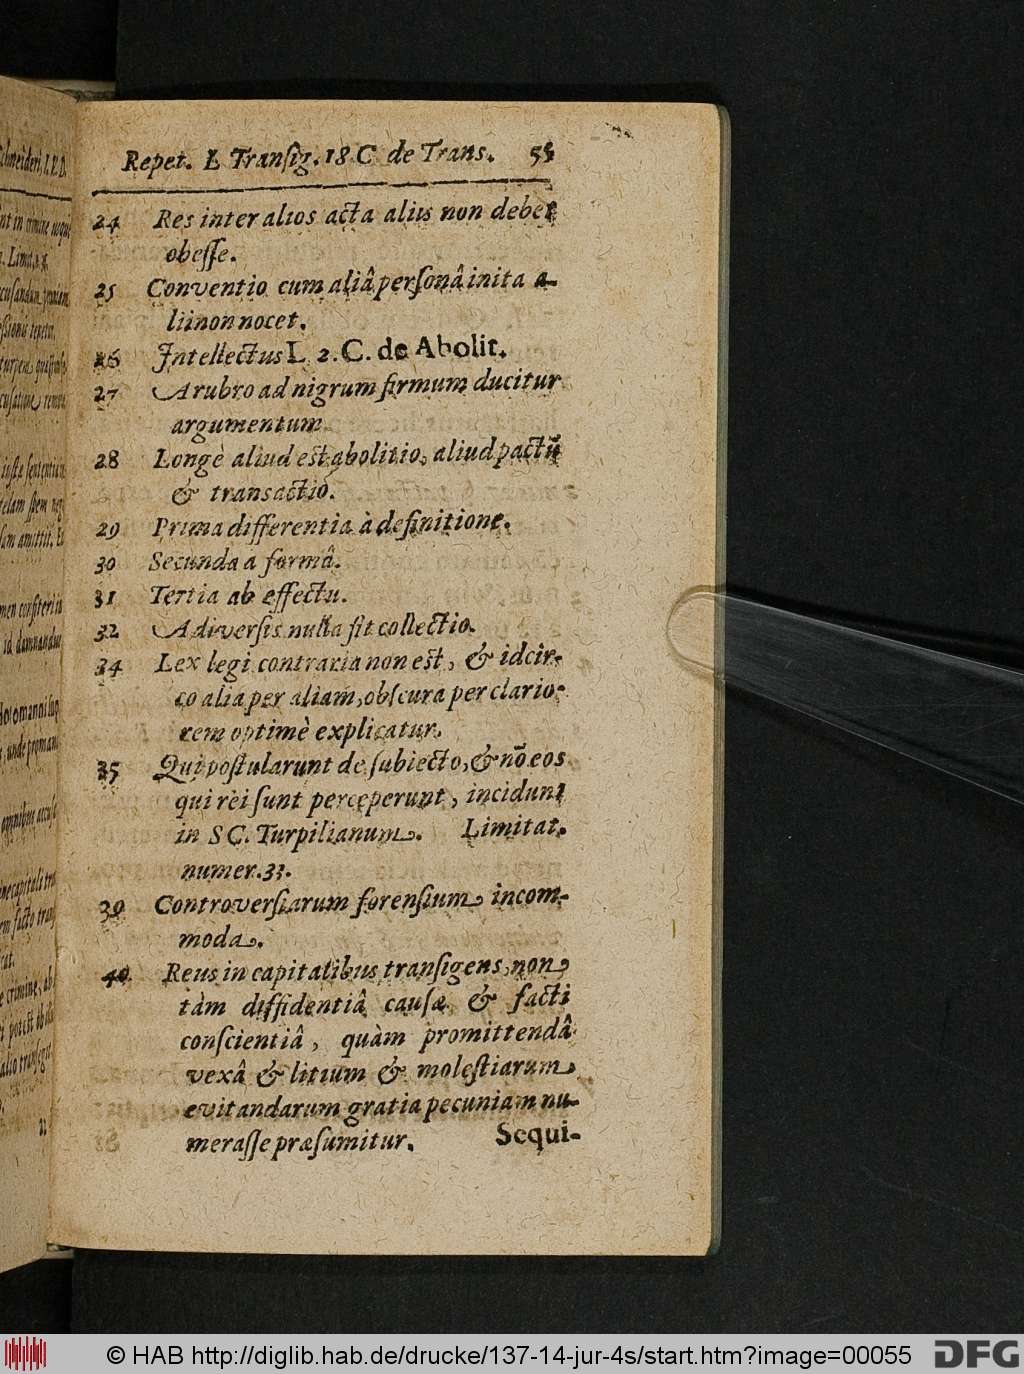 Repet. L Transig. 18 C de Trans. 55
24 Res inter alios acta aliis non debet
obesse.
25 Conventio cum aliâ personâ inita a-
lii non nocet.
26 Intellectus L 2. C. de Abolit.
27 A rubro ad nigrum firmum ducitur
argumentum
28 Longè aliud est abolitio, aliud pactũ
& transactio.
29 Prima differentia à definitione.
30 Secunda a formâ.
31 Tertia ab effectu.
32 A diversis nulla fit collectio.
34 Lex legi contraria non est, & idcir-
co alia per aliam, obscura per clario-
rem optimè explicatur.
35 Qui postularunt de subiecto, & nõ eos
qui rei sunt perceperunt, incidunt
in SC. Turpilianum. Limitat.
numer. 33.
39 Controversiarum forensium incom-
moda.
40 Reus in capitalibus transigens, non
tàm diffidentiâ causæ & facti
conscientiâ, quàm promittendâ
vexâ & litium & molestiarum
evitandarum gratia pecuniam nu-
merasse præsumitur. Sequi-
© HAB http://diglib.hab.de/drucke/137-14-jur-4s/start.htm?image=00055
DFG